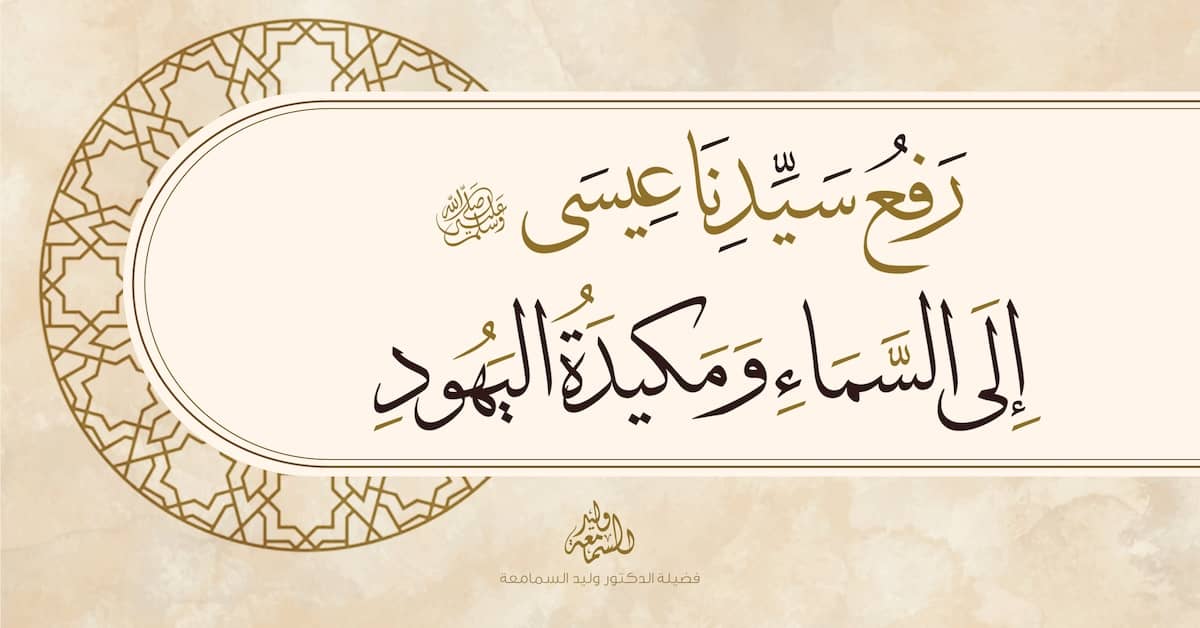 رَفعُ سَيِّدِنَا عِيسَى صلى الله عليه وسلم
إِلَى السَّمَاءِ وَمَكيدَةُ اليَهُودِ
وليد السمامعة
فضيلة الدكتور وليد السمامعة